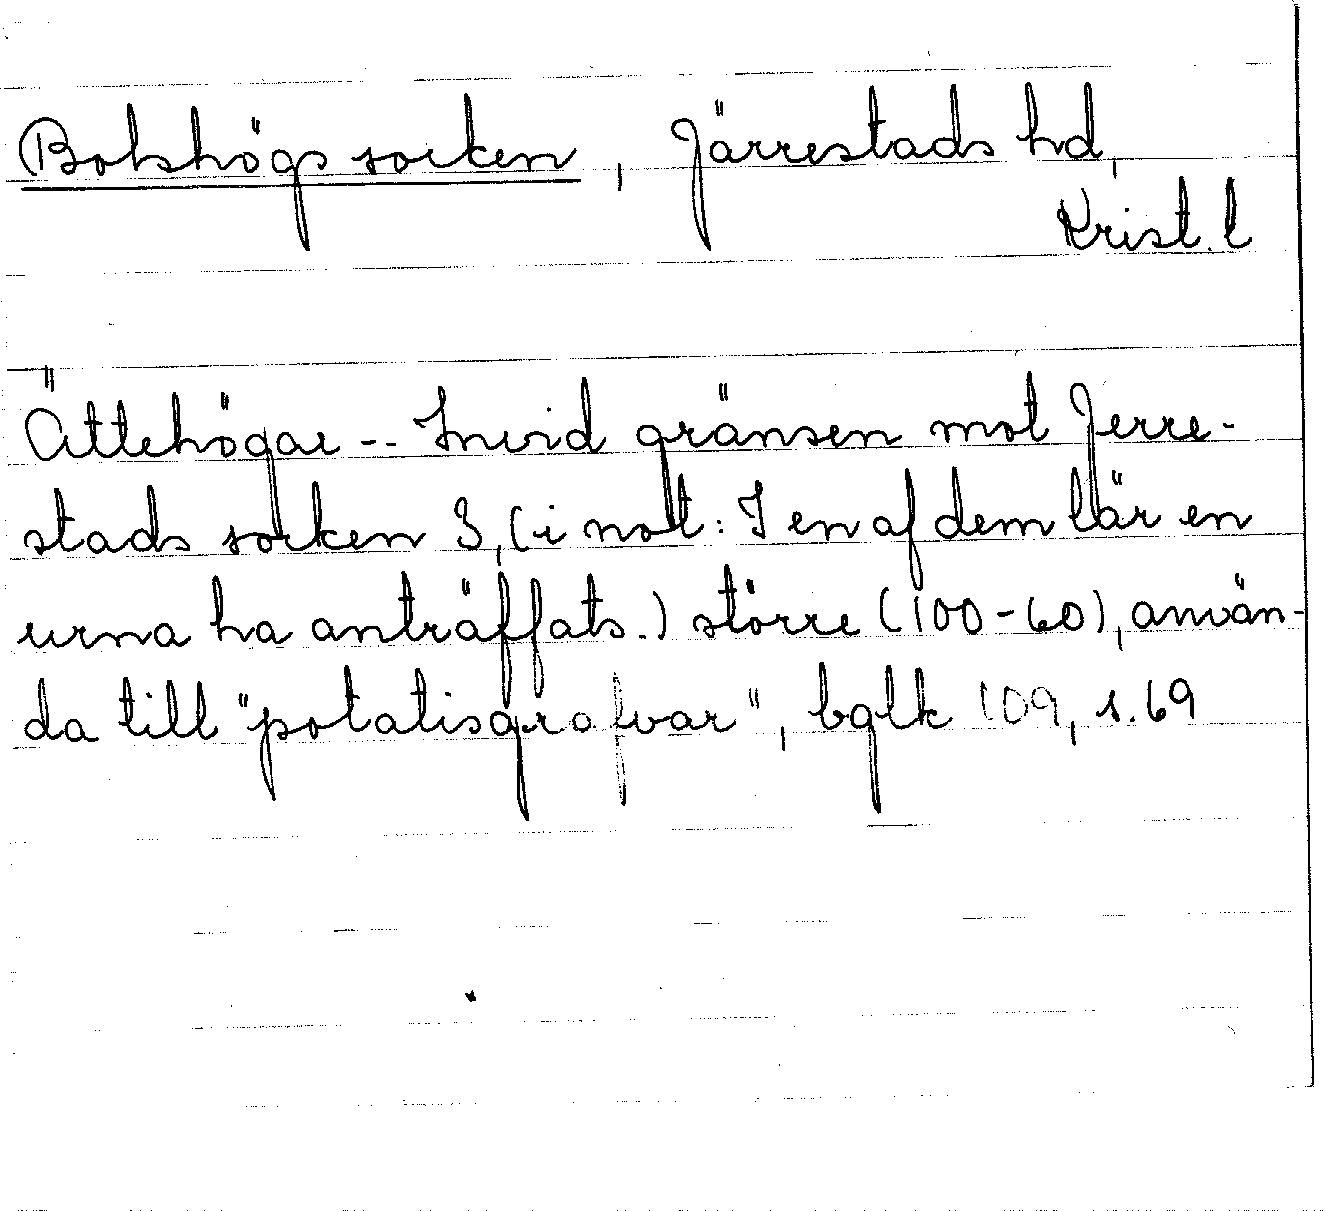 Bolshögs socken, Järrestads hd,
Krist. l
Ättehögar -- Invid gränsen mot Jerre-
stads socken 3, (i not: I en af dem lär en
urna ha anträffats.) större (100-60), använ-
da till "potatisgrafvar", bglk 109, s. 69